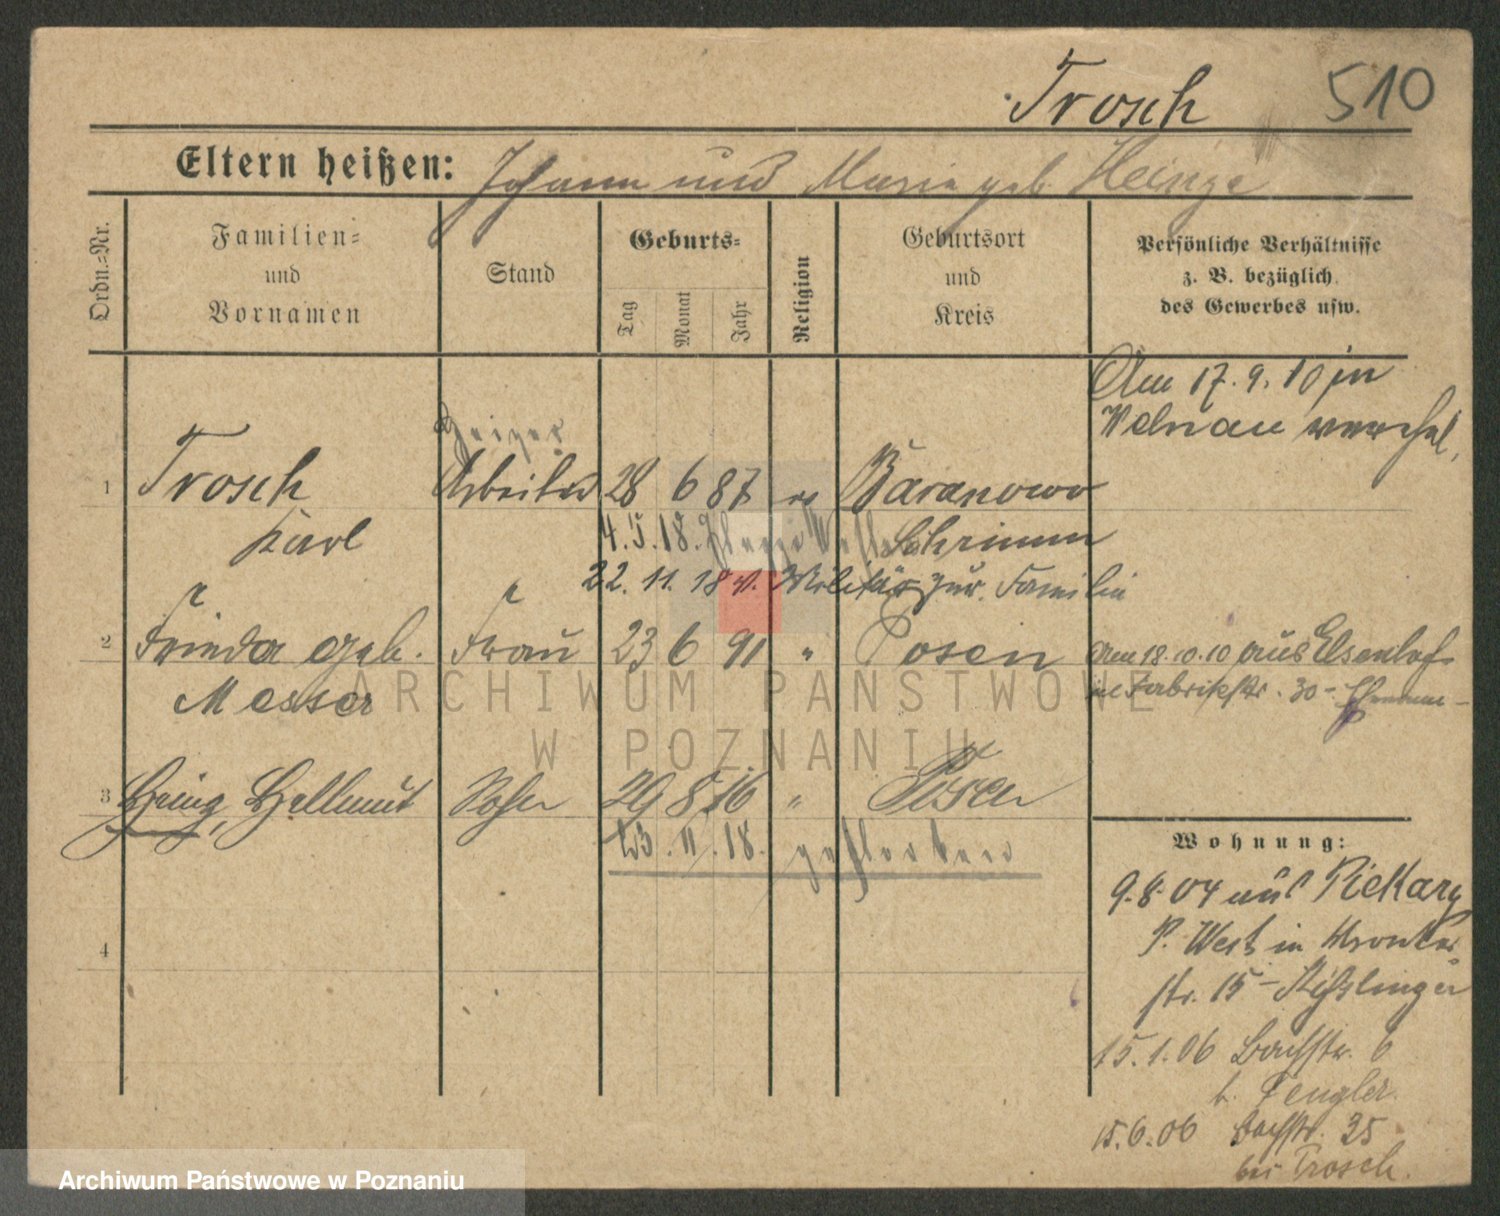 Trosch 510
Eltern heißen: Johann und Marie geb. Heinze
Ordn.=Nr.
Familien=
und
Vornamen
Stand
Geburts=
Tag
Monat
Jahr
Religion
Geburtsort
und
Kreis
Persönliche Verhältnisse
z. B. bezüglich
des Gewerbes usw.
Am 17.9.10 in
Heizer
1 Trosch Arbeiter 28 6 87 Baranowo
Karl 4.5.18. Schrimm
22.11.18 v. Militär zur. Familie
2 Frieda geb. Frau 23 6 91 " Posen Am 18.10.10 aus Elsenhof
Messer in Fabrikstr. 30
3 Heinz, Hellmut Sohn 29 8 16 " Posen
23.11.18. gestorben
4
Wohnung:
9.8.04 aus Piekary
P. West in Kronker
str. 15 -
15.1.06 Bachstr. 6
b. Tengler
15.6.06 Bachstr. 35
bei Trosch.
ARCHIWUM PAŃSTWOWE
W POZNANIU
Archiwum Państwowe w Poznaniu